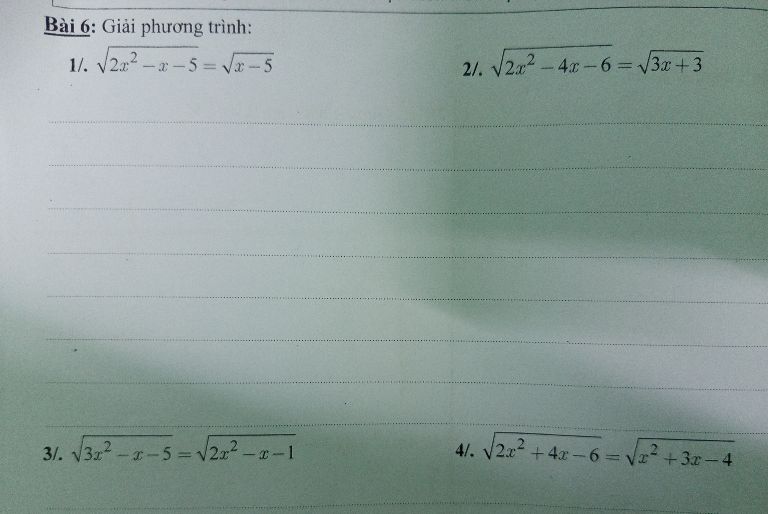 Bài 6: Giải phương trình:
1/. √(2x² − x − 5) = √(x − 5)
2/. √(2x² − 4x − 6) = √(3x + 3)
3/. √(3x² − x − 5) = √(2x² − x − 1)
4/. √(2x² + 4x − 6) = √(x² + 3x − 4)